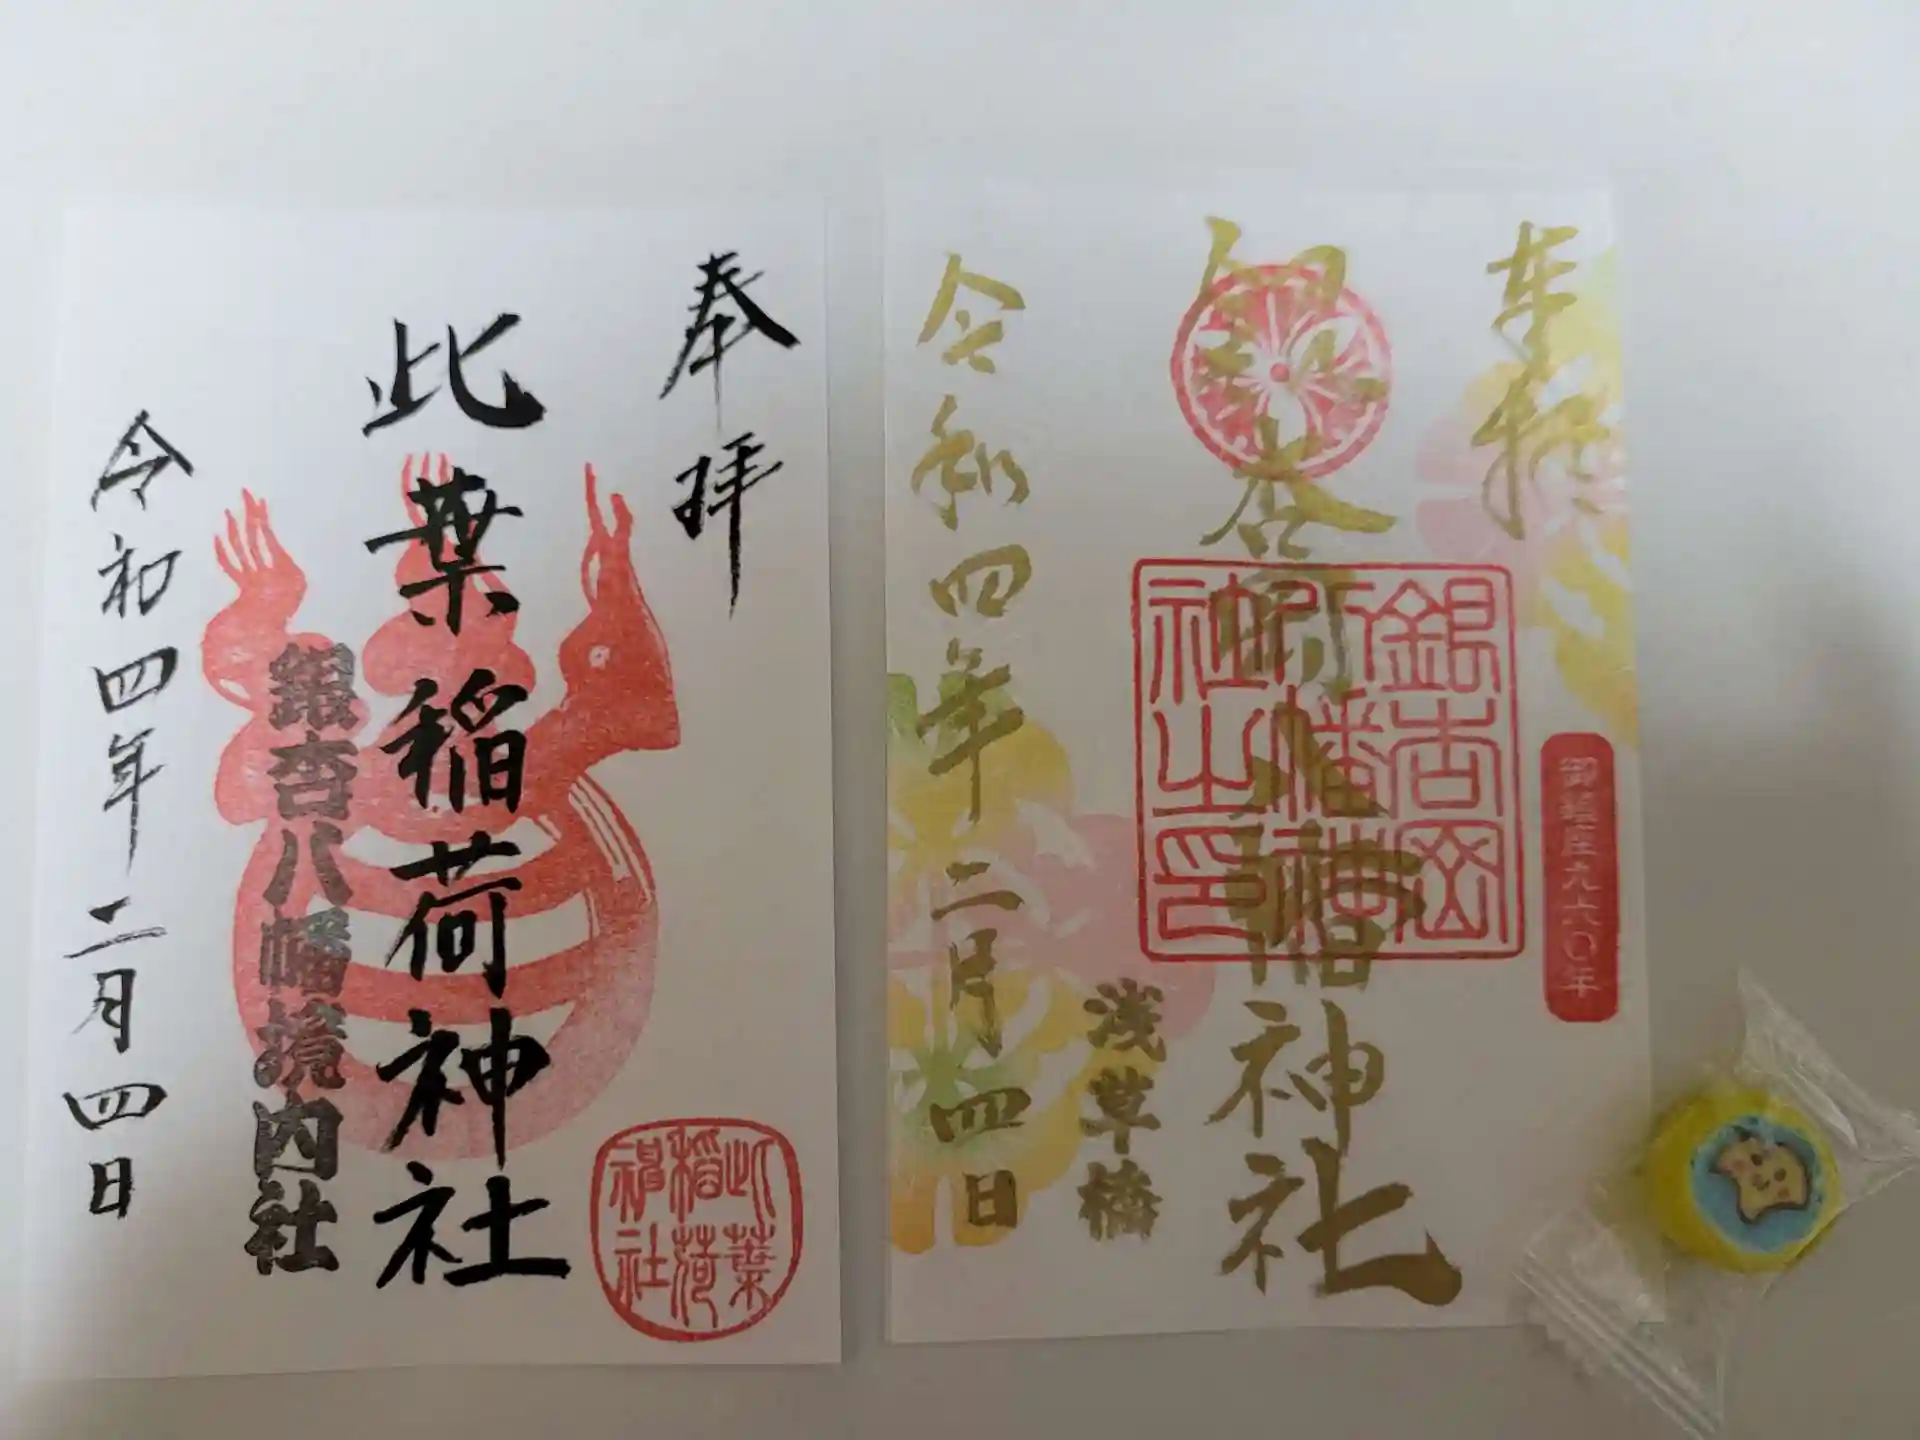 奉拝
此葉稲荷神社
銀杏八幡境内社
令和四年二月四日
此葉
稲荷
神社
奉拝
御鎮座九六〇年
銀杏岡八幡神社
銀杏岡
八幡神
社之印
浅草橋
令和四年二月四日